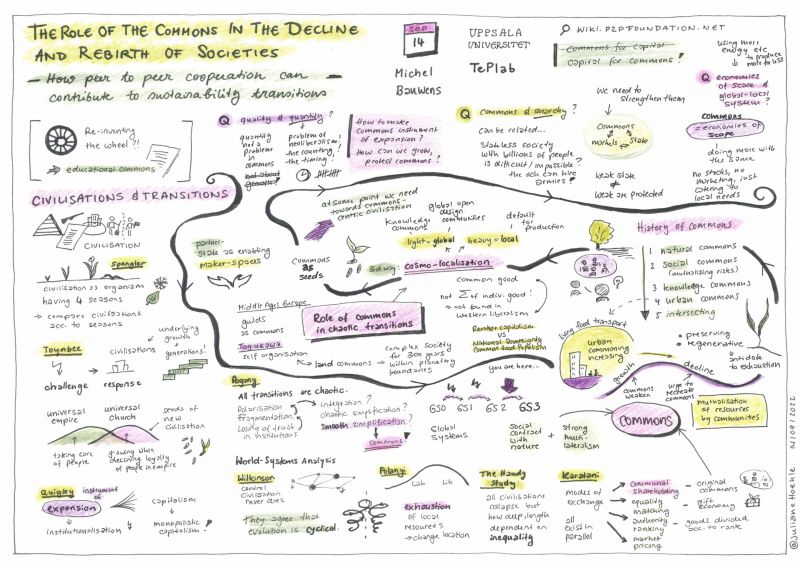 THE ROLE OF THE COMMONS IN THE DECLINE
AND REBIRTH OF SOCIETIES
- How peer to peer cooperation can -
contribute to sustainability transitions
SEP
14
Michel
Bauwens
UPPSALA
UNIVERSITET
TePlab
WIKI.P2PFOUNDATION.NET
commons for capital
capital for commons!
using more
energy etc
to produce
more for less
Q economies
of scale &
global-local
system?
commons
= economies of
scope
doing more with
the same
no stocks, no
marketing, just
catering to
local needs
Re-inventing
the wheel?!
→ educational commons
Q quality & quantity?
quantity
not a
problem
in
commons
not about
growth!
problem of
neoliberalism!
the counting,
the timing!
How to make
commons instrument
of expansion?
How can we grow,
protect commons?
Q commons & anarchy?
can be related...
Stateless society
with billions of people
is difficult/impossible?
the rich can hire
armies!
we need to
strengthen them
commons
markets State
weak state
≠
weak are protected
CIVILISATIONS & TRANSITIONS
CIVILISATION
Spengler
civilisation as organism
having 4 seasons
→ compare civilisations
acc. to seasons
Toynbee
challenge
civilisations
response
underlying
growth
generations!
universal
empire
universal
church
seeds of
new
civilisation
taking care
of people
growing when
declining loyalty
of people in empire
Quigley
instrument of
expansion
institutionalisation
capitalism
monopolistic
capitalism
at some point we need
towards commons-
centric civilisation
partner-
state as enabling
maker-spaces
commons
as
seeds
knowledge
commons
global open
design
communities
default
for
production
light = global heavy = local
3rd way: cosmo-localisation
Middle Ages Europe
guilds
as commons
Tokugawa
self organisation
land commons
→ complex society
for 300 years
within planetary
boundaries
Role of commons
in chaotic transitions
common good
not Σ of indiv. good!
→ not found in
western liberalism
Rentier capitalism
vs
National Sovereignty
Common Good Populism
you are here...
GS0 GS1 GS2 GS3
Global
Systems
Social
contract
with
nature
+
strong
multi-
lateralism
Pogany
All transitions are chaotic.
Polarisation
Fragmentation
Losing of trust
in institutions
integration?
chaotic simplification?
smooth simplification?
commons
World-Systems Analysis
Wilkinson
central
civilisation
never dies
They agree that
evolution is cyclical.
Polanyi
Lab Lib
exhaustion
of local
resources
→ change location
The Handy
Study:
all civilisations
collapse but
how deep, length
dependent on
inequality
Karatani
modes of
exchange
all
exist in
parallel
communal
shareholding
equality
matching
authority
ranking
market
pricing
original
commons
gift
economy
goods divided
acc. to rank
History of commons
1 natural commons
2 social commons
(mutualising risks)
3 knowledge commons
4 urban commons
5 intersecting
• preserving
• regenerative
antidote
to exhaustion
living food transport
urban
commoning
increasing
growth
decline
commons
weaken
urge to
recreate
commons
COMMONS
Mutualisation
of resources
by communities
@juliane Hoehle N/09/2022